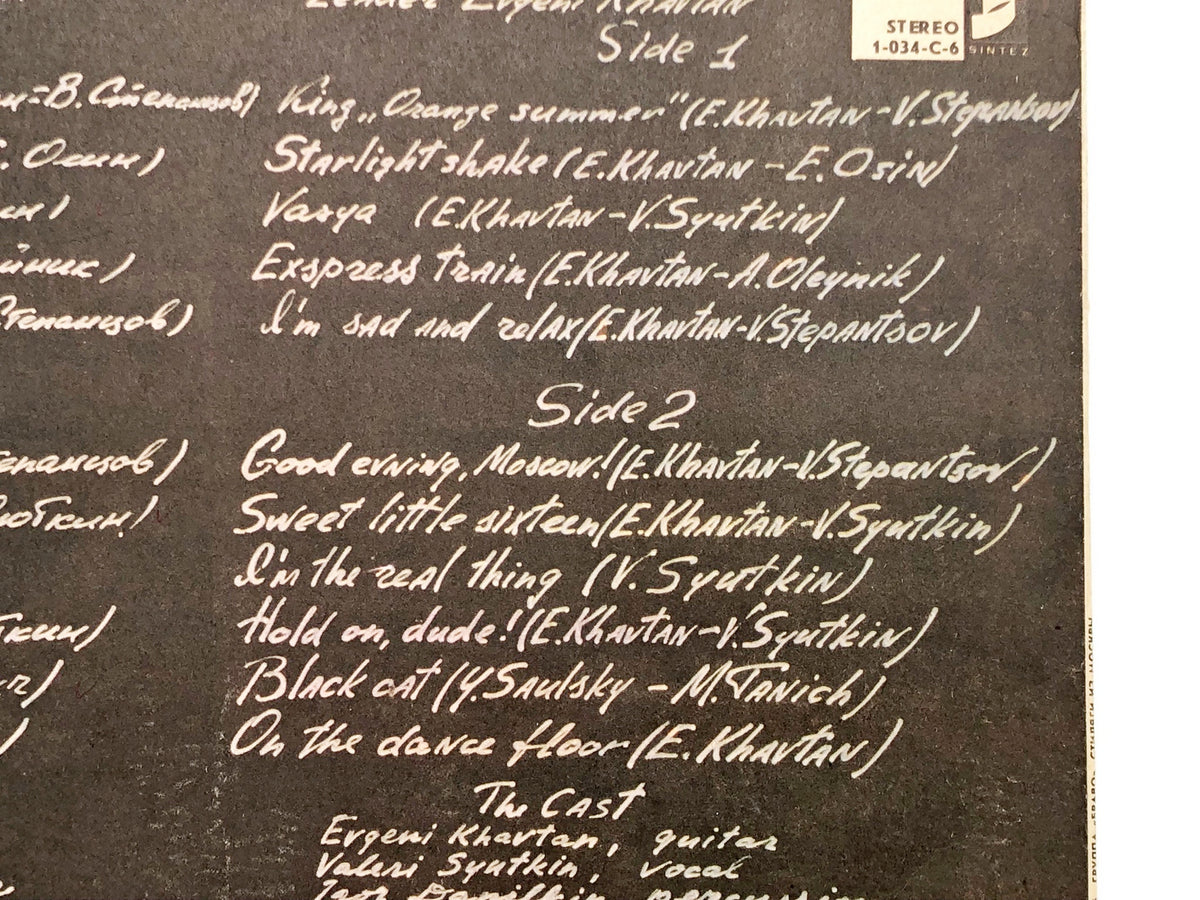 Leader Evgeni Khavtan
STEREO
1-034-C-6 SINTEZ
Side 1
В. Степанцов) King „Orange summer" (E.Khavtan - V.Stepantsov)
. Осин) Starlight shake (E.Khavtan - E.Osin)
Vasya (E.Khavtan - V.Syutkin)
Exspress train (E.Khavtan - A.Oleynik)
Степанцов) I'm sad and relax (E.Khavtan - V.Stepantsov)
Side 2
Good evning, Moscow! (E.Khavtan - V.Stepantsov)
Sweet little sixteen (E.Khavtan - V.Syutkin)
I'm the real thing (V. Syutkin)
Hold on, dude! (E.Khavtan - V.Syutkin)
Black cat (Y.Saulsky - M.Tanich)
On the dance floor (E.Khavtan)
The Cast
Evgeni Khavtan, guitar
Valeri Syutkin, vocal
Igor Danilkin, percussion
ГРУППА «БРАВО» СТИЛЯГИ ИЗ МОСКВЫ